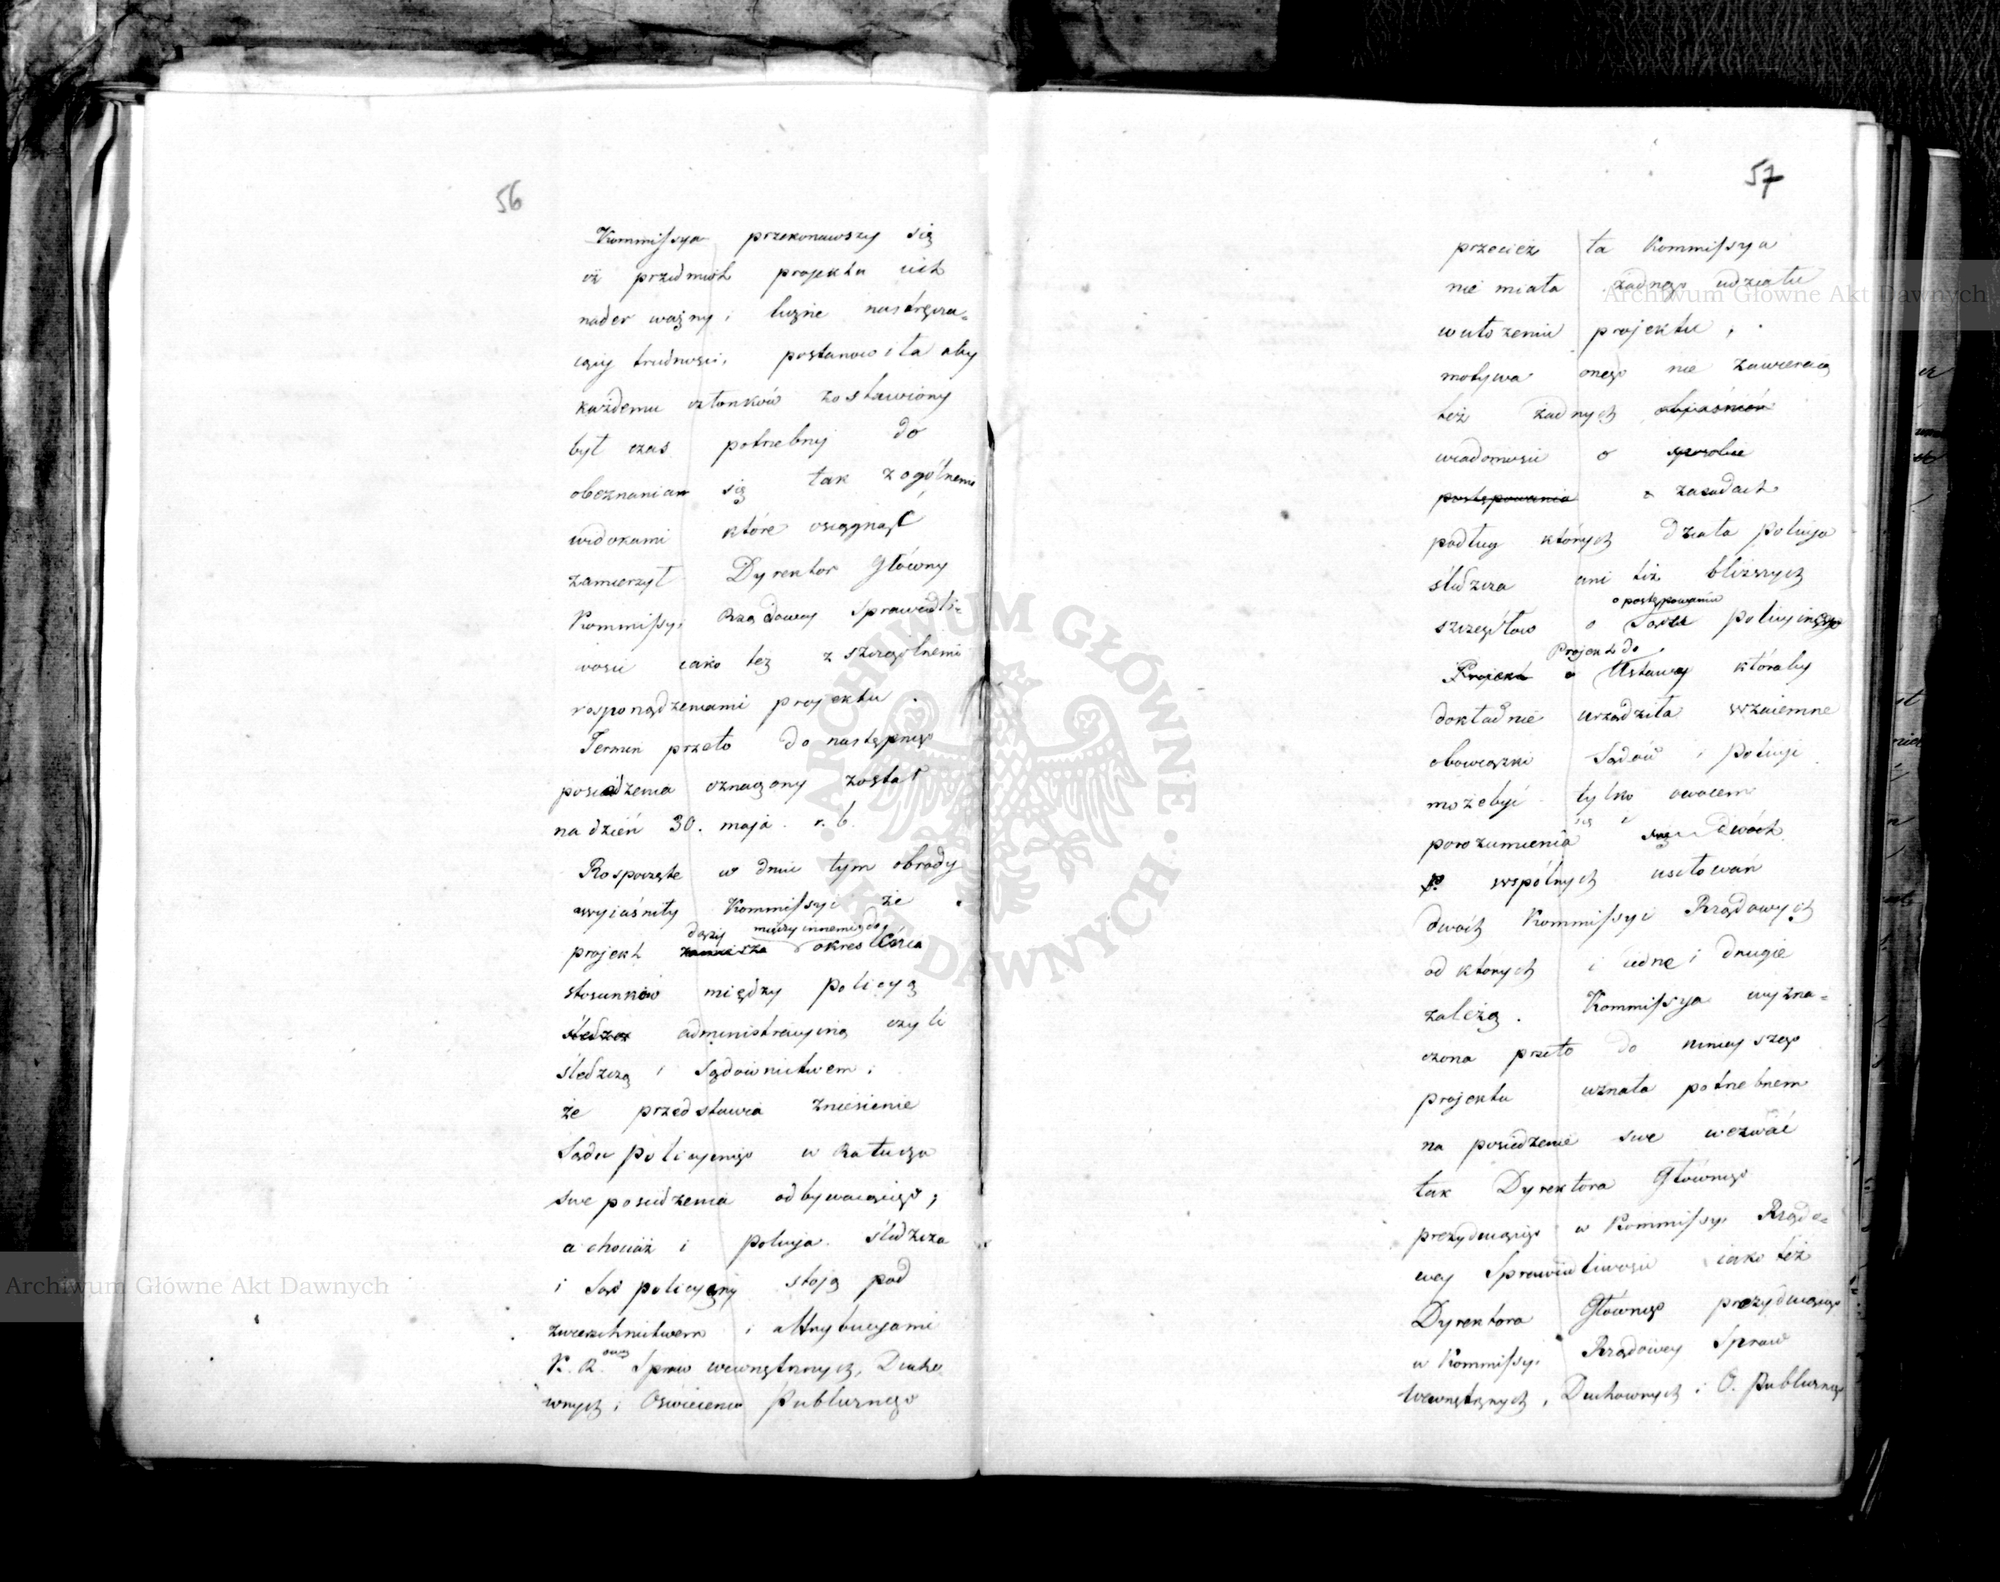 56
Kommissya przekonawszy się
iż przedmiot projektu iest
nader ważny i liczne nastręcza-
iący trudności, postanowiła aby
każdemu członków zostawiony
był czas potrzebny do
obeznania się tak z ogólnemi
widokami które osiągnąć
zamierzył Dyrektor Główny
Kommissyi Rządowey Sprawiedli-
wości iako też z szczególnemi
rosporządzeniami projektu.
Termin przeto do następnego
posiedzenia oznaczony został
na dzień 30. maja r. b.
Rospoczęte w dniu tym obrady
wyiaśniły Kommissyi że
dąży między innemi do
projekt zamierza określenia
stosunków między policyą
śledczą administracyiną czyli
śledczą i Sądownictwem;
że przedstawia zniesienie
Sądu policyjnego w Ratuszu
swe posiedzenia odbywaiącego;
a chociaż i policya śledcza
i Sąd policyiny stoją pod
zwierzchnictwem i attrybucyami
K. R. Spraw wewnętrznych, Ducho-
wnych i Oświecenia Publicznego
57
przecież ta Kommissya
nie miała żadnego udziału
w ułożeniu projektu;
motywa onego nie zawieraią
też żadnych objaśnień
wiadomości o sposobie
postępowania zasadach
podług których działa policya
śledcza ani też bliższych
o postępowaniu
szczegółów o Sądu policyinego
Projekt do
Projekt Ustawy któraby
dokładnie urządziła wzaiemne
obowiązki Sądów i policyi
może być tylko owocem
się
porozumienia się dwóch
wspólnych usiłowań
dwóch Kommissyi Rządowych
od których i iedne i drugie
zależą. Kommissya wyzna-
czona przeto do ninieyszego
projektu uznała potrzebnem
na posiedzenie swe wezwać
tak Dyrektora Głównego
prezyduiącego w Kommissyi Rządo-
wey Sprawiedliwości iako też
Dyrektora Głównego prezyduiącego
w Kommissyi Rządowey Spraw
Wewnętrznych, Duchownych i O. Publicznego
Archiwum Główne Akt Dawnych
Archiwum Główne Akt Dawnych
ARCHIWUM GŁÓWNE AKT DAWNYCH